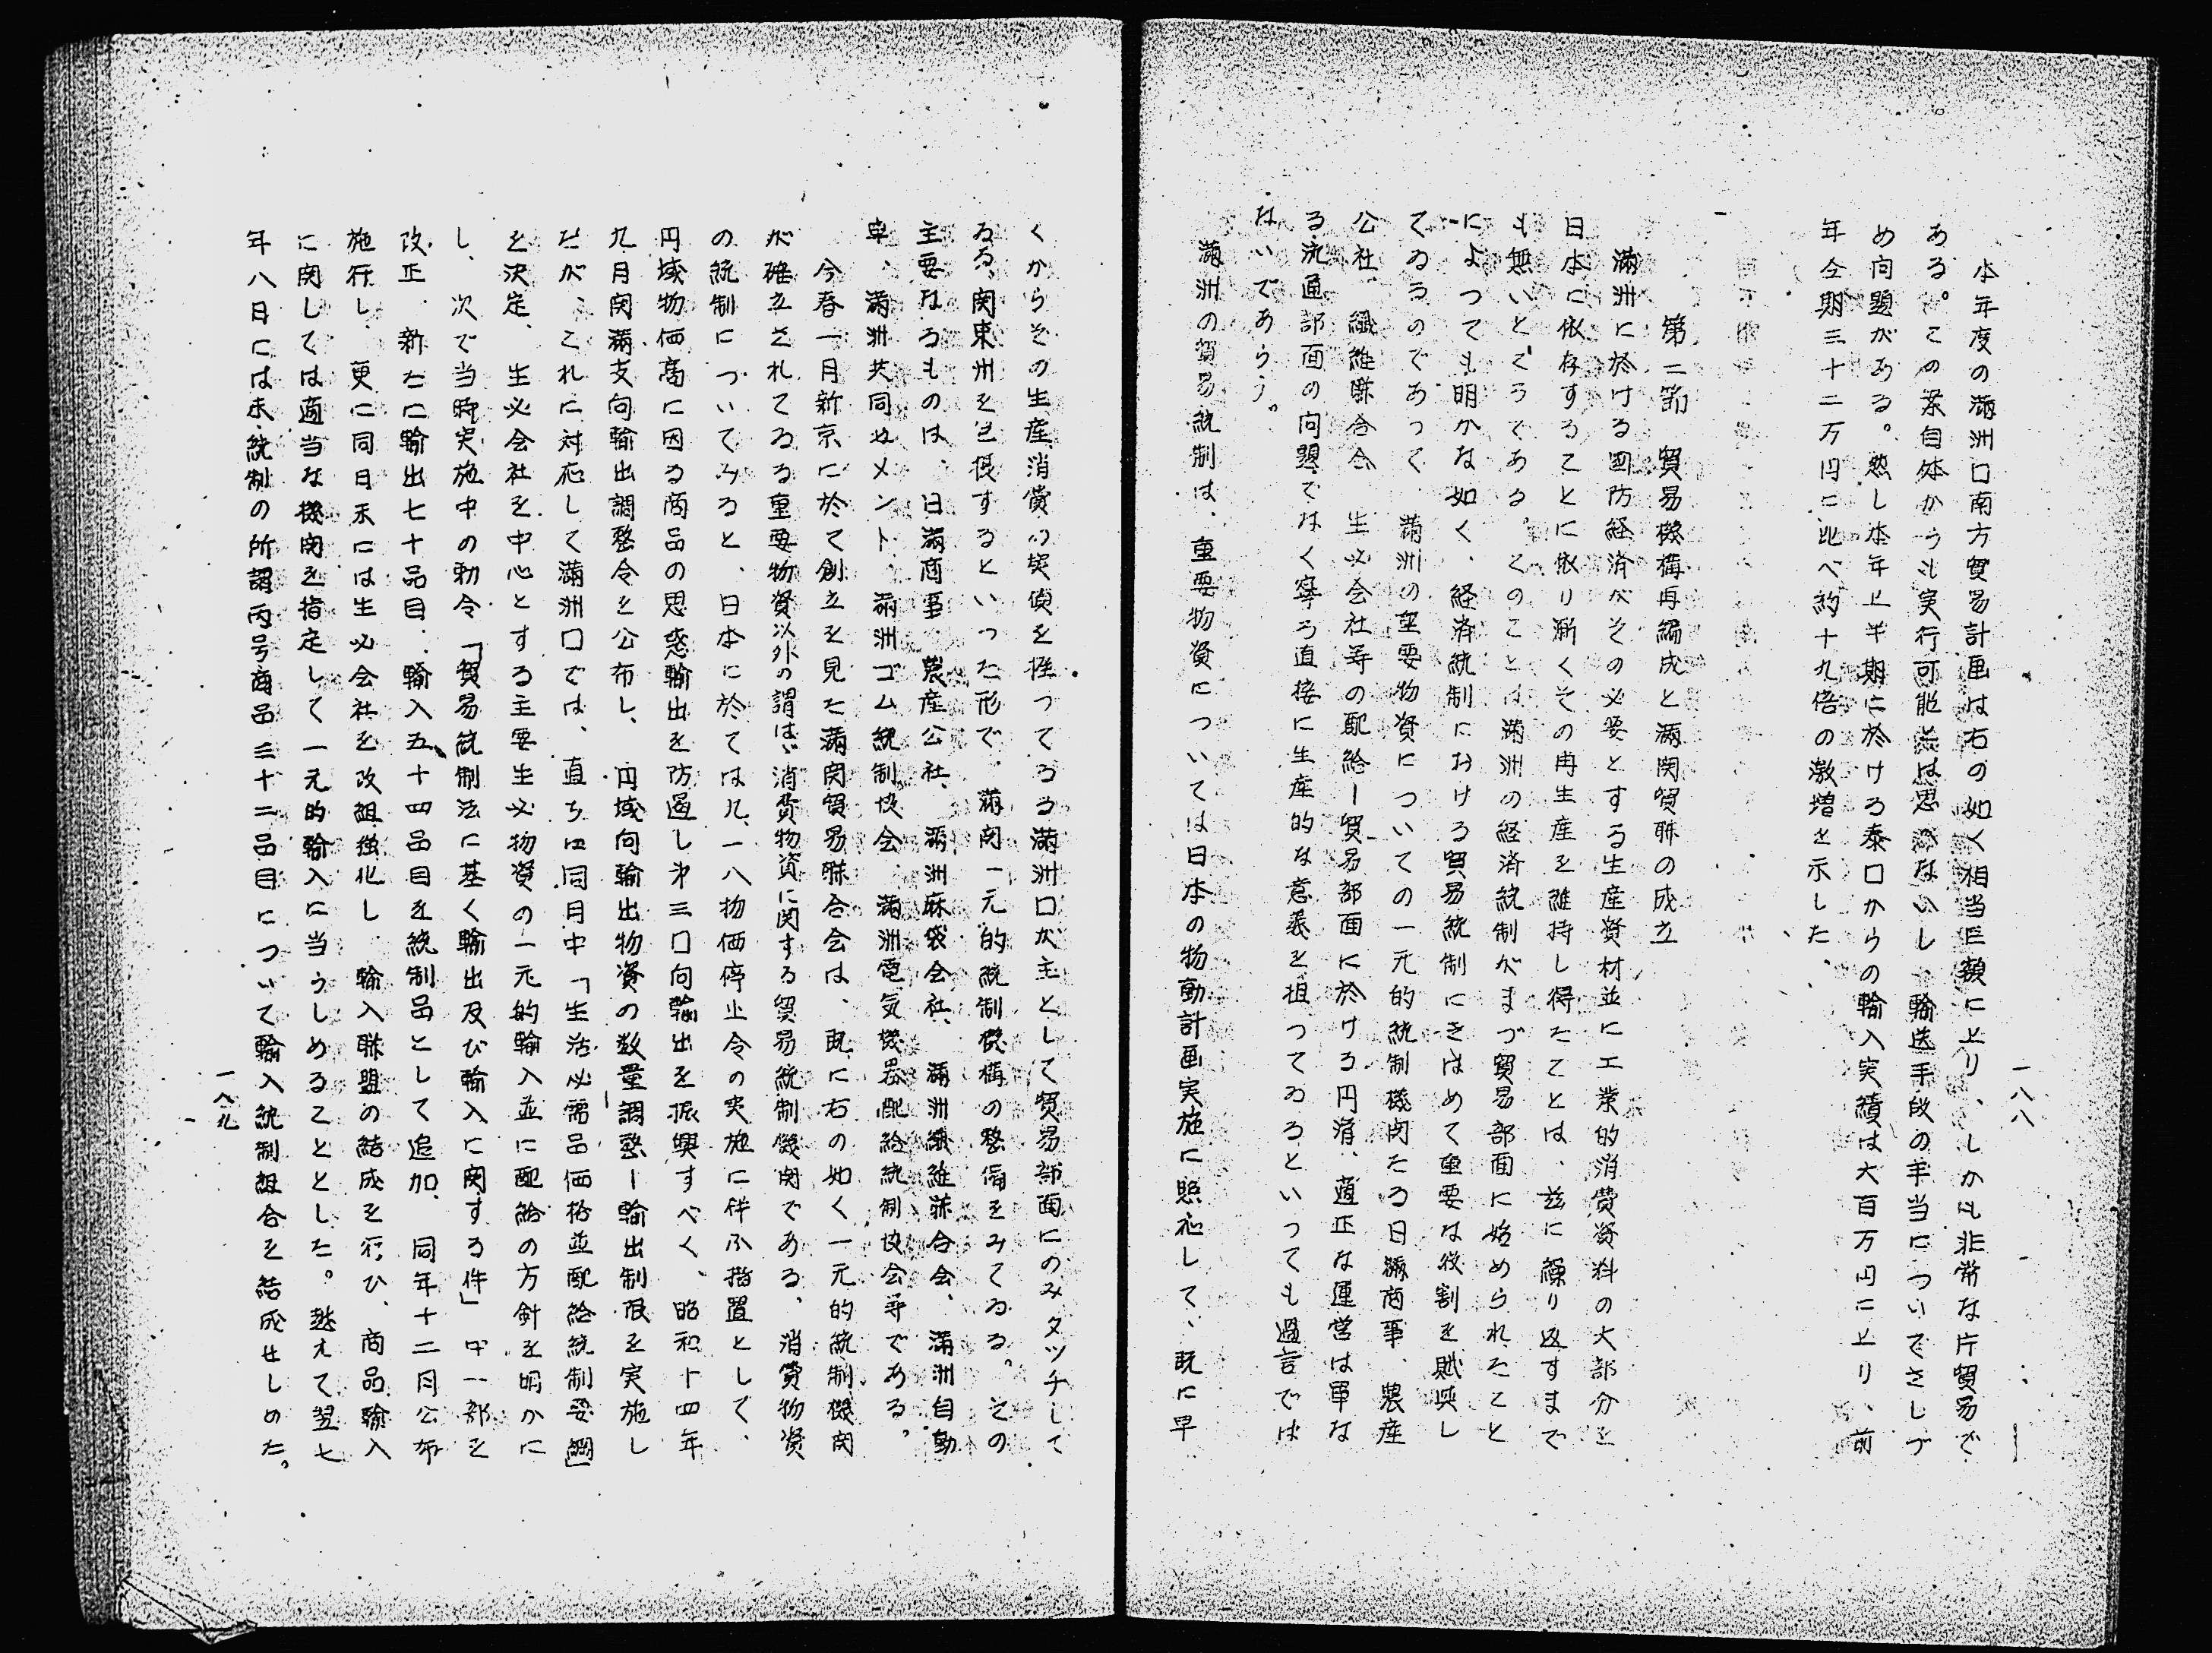 一八八
本年度の満洲口南方貿易計画は右の如く相当巨額に上り、しかも非常な片貿易で
ある。この案自体からも実行可能とは思はないし、輸送手段の手当についてさしづ
め问題がある。然し本年上半期に於ける泰口からの輸入実績は六百万円に上り、前
年全期三十二万円に比べ約十九倍の激増を示した、
第二節　貿易機構再編成と満関貿聯の成立
満洲に於ける国防経済がその必要とする生産資材並に工業的消費資料の大部分を
日本に依存することに依り漸くその再生産を維持し得たことは、茲に繰り返すまで
も無いところである。このことは満洲の経済統制がまづ貿易部面に始められたこと
によつても明かな如く、経済統制における貿易統制にきはめて重要な役割を賦與し
てゐるのであつて、満洲の重要物資についての一元的統制機関たる日満商事、農産
公社、繊維聯合会、生必会社等の配給ー貿易部面に於ける円滑、適正な運営は単な
る流通部面の问題でなく寧ろ直接に生産的な意義を担つてゐるといつても過言では
ないであらう。
満洲の貿易統制は、重要物資については日本の物動計画実施に照応して、既に早
くからその生産消費の実績を握つてゐる満洲口が主として貿易部面にのみタツチして
ゐる、関東州を包摂するといつた形で、満関一元的統制機構の整備をみてゐる。その
主要なるものは、日満商事、農産公社、満洲麻袋会社、満洲繊維聯合会、満洲自動
車、満洲共同セメント、満洲ゴム統制協会、満洲電気機器配給統制協会等である。
今春一月新京に於て創立を見た満関貿易聯合会は、既に右の如く一元的統制機関
が確立されてゐる重要物資以外の謂はゞ消費物資に関する貿易統制機関である、消費物資
の統制についてみると、日本に於ては九、一八物価停止令の実施に伴ふ措置として、
円域物価高に因る商品の思惑輸出を防遏し才三口向輸出を振興すべく、昭和十四年
九月関満支向輸出調整令を公布し、円域向輸出物資の数量調整ー輸出制限を実施し
だが、これに対応して満洲口では、直ちに同月中「生活必需品価格並配給統制要綱」
を決定、生必会社を中心とする主要生必物資の一元的輸入並に配給の方針を明かに
し、次で当時実施中の勅令「貿易統制法に基く輸出及び輸入に関する件」中一部を
改正、新たに輸出七十品目、輸入五十四品目を統制品として追加、同年十二月公布
施行し、更に同日末には生必会社を改組強化し、輸入聯盟の結成を行ひ、商品輸入
に関しては適当な機関を指定して一元的輸入に当うしめることとした。越えて翌七
年八日には未統制の所謂丙号商品三十二品目について輸入統制組合を結成せしめた。
一八九